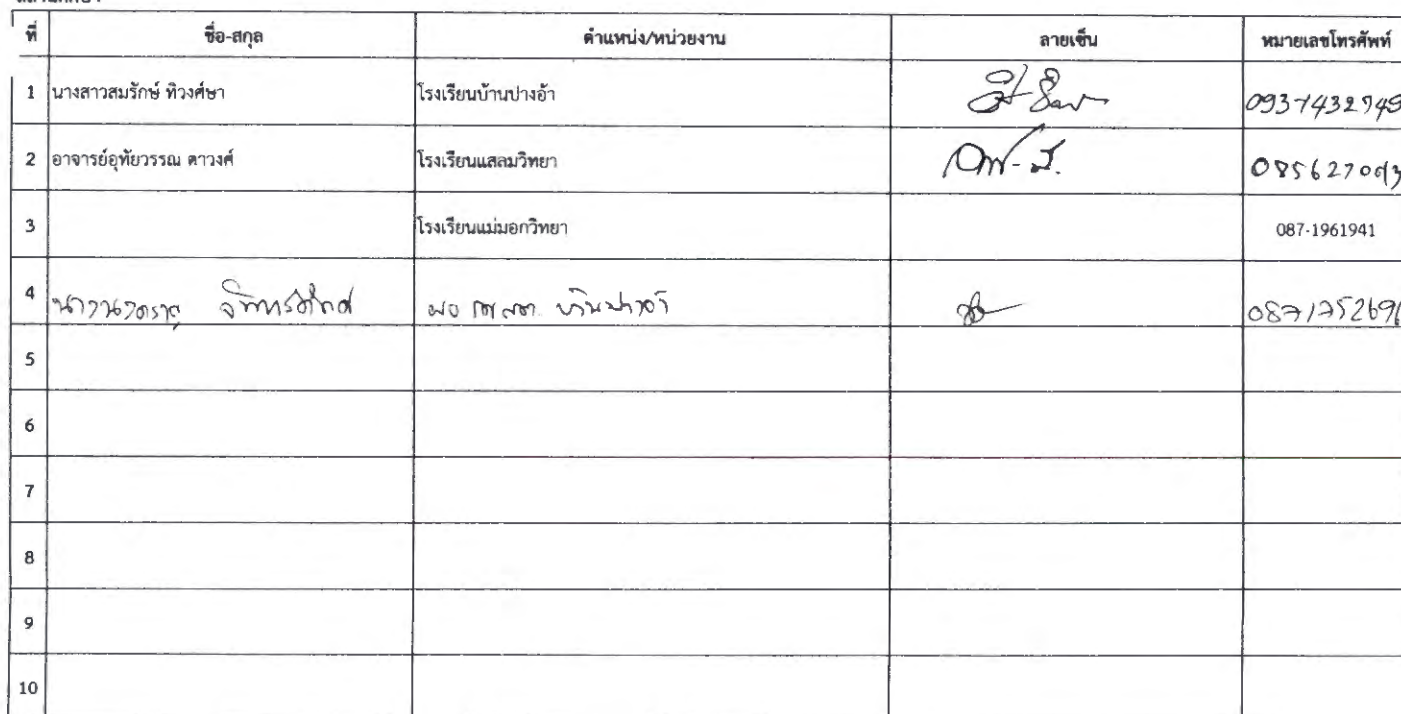 ที่ ชื่อ-สกุล ตำแหน่ง/หน่วยงาน ลายเซ็น หมายเลขโทรศัพท์
1 นางสาวสมรักษ์ ทิวงศ์ษา โรงเรียนบ้านปางอ้า
2 อาจารย์อุทัยวรรณ ตาวงศ์ โรงเรียนแสลมวิทยา
3 โรงเรียนแม่มอกวิทยา 087-1961941
4
5
6
7
8
9
10